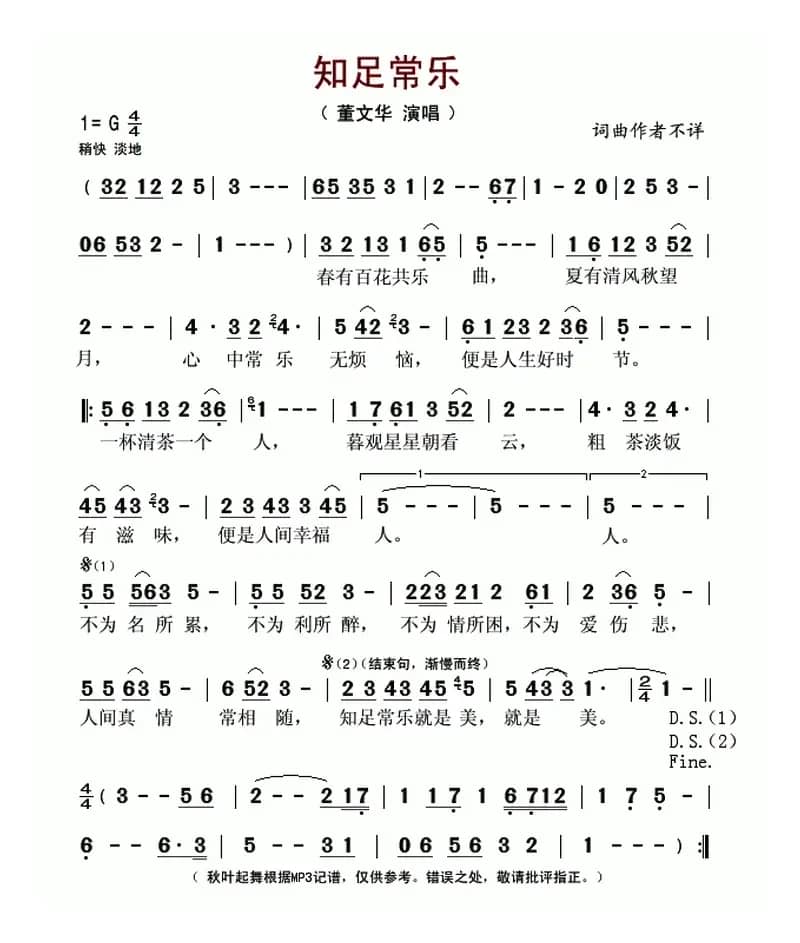 知足常乐
（ 董文华 演唱 ）
1= G 4/4
词曲作者不详
稍快 淡地
( 32 12 2 5 | 3 - - - | 65 35 3 1 | 2 - - 67 | 1 - 2 0 | 2 5 3 - |
06 53 2 - | 1 - - - ) | 3 2 13 1 65 | 5 - - - | 1 6 12 3 52 |
春有百花共乐 曲， 夏有清风秋望
2 - - - | 4 · 3 2 2 4 · | 5 42 2 3 - | 6 1 23 2 36 | 5 - - - |
月， 心 中常 乐 无烦 恼， 便是人生好时 节。
‖: 5 6 13 2 36 | 6 1 - - - | 1 7 61 3 52 | 2 - - - | 4 · 3 2 4 · |
一杯清茶一个 人， 暮观星星朝看 云， 粗 茶淡饭
1 2
45 43 2 3 - | 2 3 43 3 45 | 5 - - - | 5 - - - | 5 - - - |
有 滋 味， 便是人间幸福 人。 人。
𝄋(1)
5 5 563 5 - | 5 5 52 3 - | 223 21 2 61 | 2 36 5 - |
不为 名 所 累， 不为 利所 醉， 不为 情所困，不为 爱 伤 悲，
𝄋(2)（结束句，渐慢而终）
5 5 63 5 - | 6 52 3 - | 2 3 43 45 4 5 | 5 43 3 1 · | 2/4 1 - ‖
人间真 情 常相 随， 知足常乐就是 美，就是 美。 D.S.(1)
D.S.(2)
Fine.
4/4 ( 3 - - 5 6 | 2 - - 2 17 | 1 17 1 6 712 | 1 7 5 - |
6 - - 6 · 3 | 5 - - 31 | 06 56 3 2 | 1 - - - ) :‖
（ 秋叶起舞根据MP3记谱，仅供参考。错误之处，敬请批评指正。）